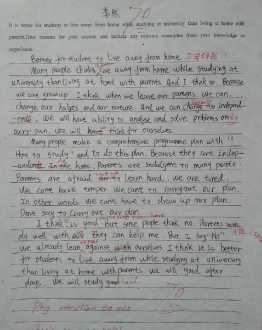 70
It is better for students to live away from home while studying at university than living at home with
parents. Give reasons for your answer and include any relevant examples from your knowledge or
experience.
Better for students to live away from home
Many people choose live away from home while studying at
university than living at home with parents. And I think so. Because
we are grownup. I think when we leave our parents we can
change our habges and our nature. And we can independ-
ence. We will have ability to analyse and solve problems on
ours own. We will have think for ourselves.
Many people make a comprehensive programme plan with "
How to study" and to do this plan. Because they not indep-
endence in the home. Parents are indulgence to many people.
Parents are afraid to learn hard, we are tired.
We can't have temper. We can't to carry out our plan.
In other words We can't have to draw up our plan.
Don't say to carry out our plan.
I think is good But some people think no. Parents
do well with they can help me. But I say "No"
we already lean against with ourselves I think it is better
for students to live away from while studying at university
than living at home with parents. we will good after
days. We will study good
70
Pay attention to